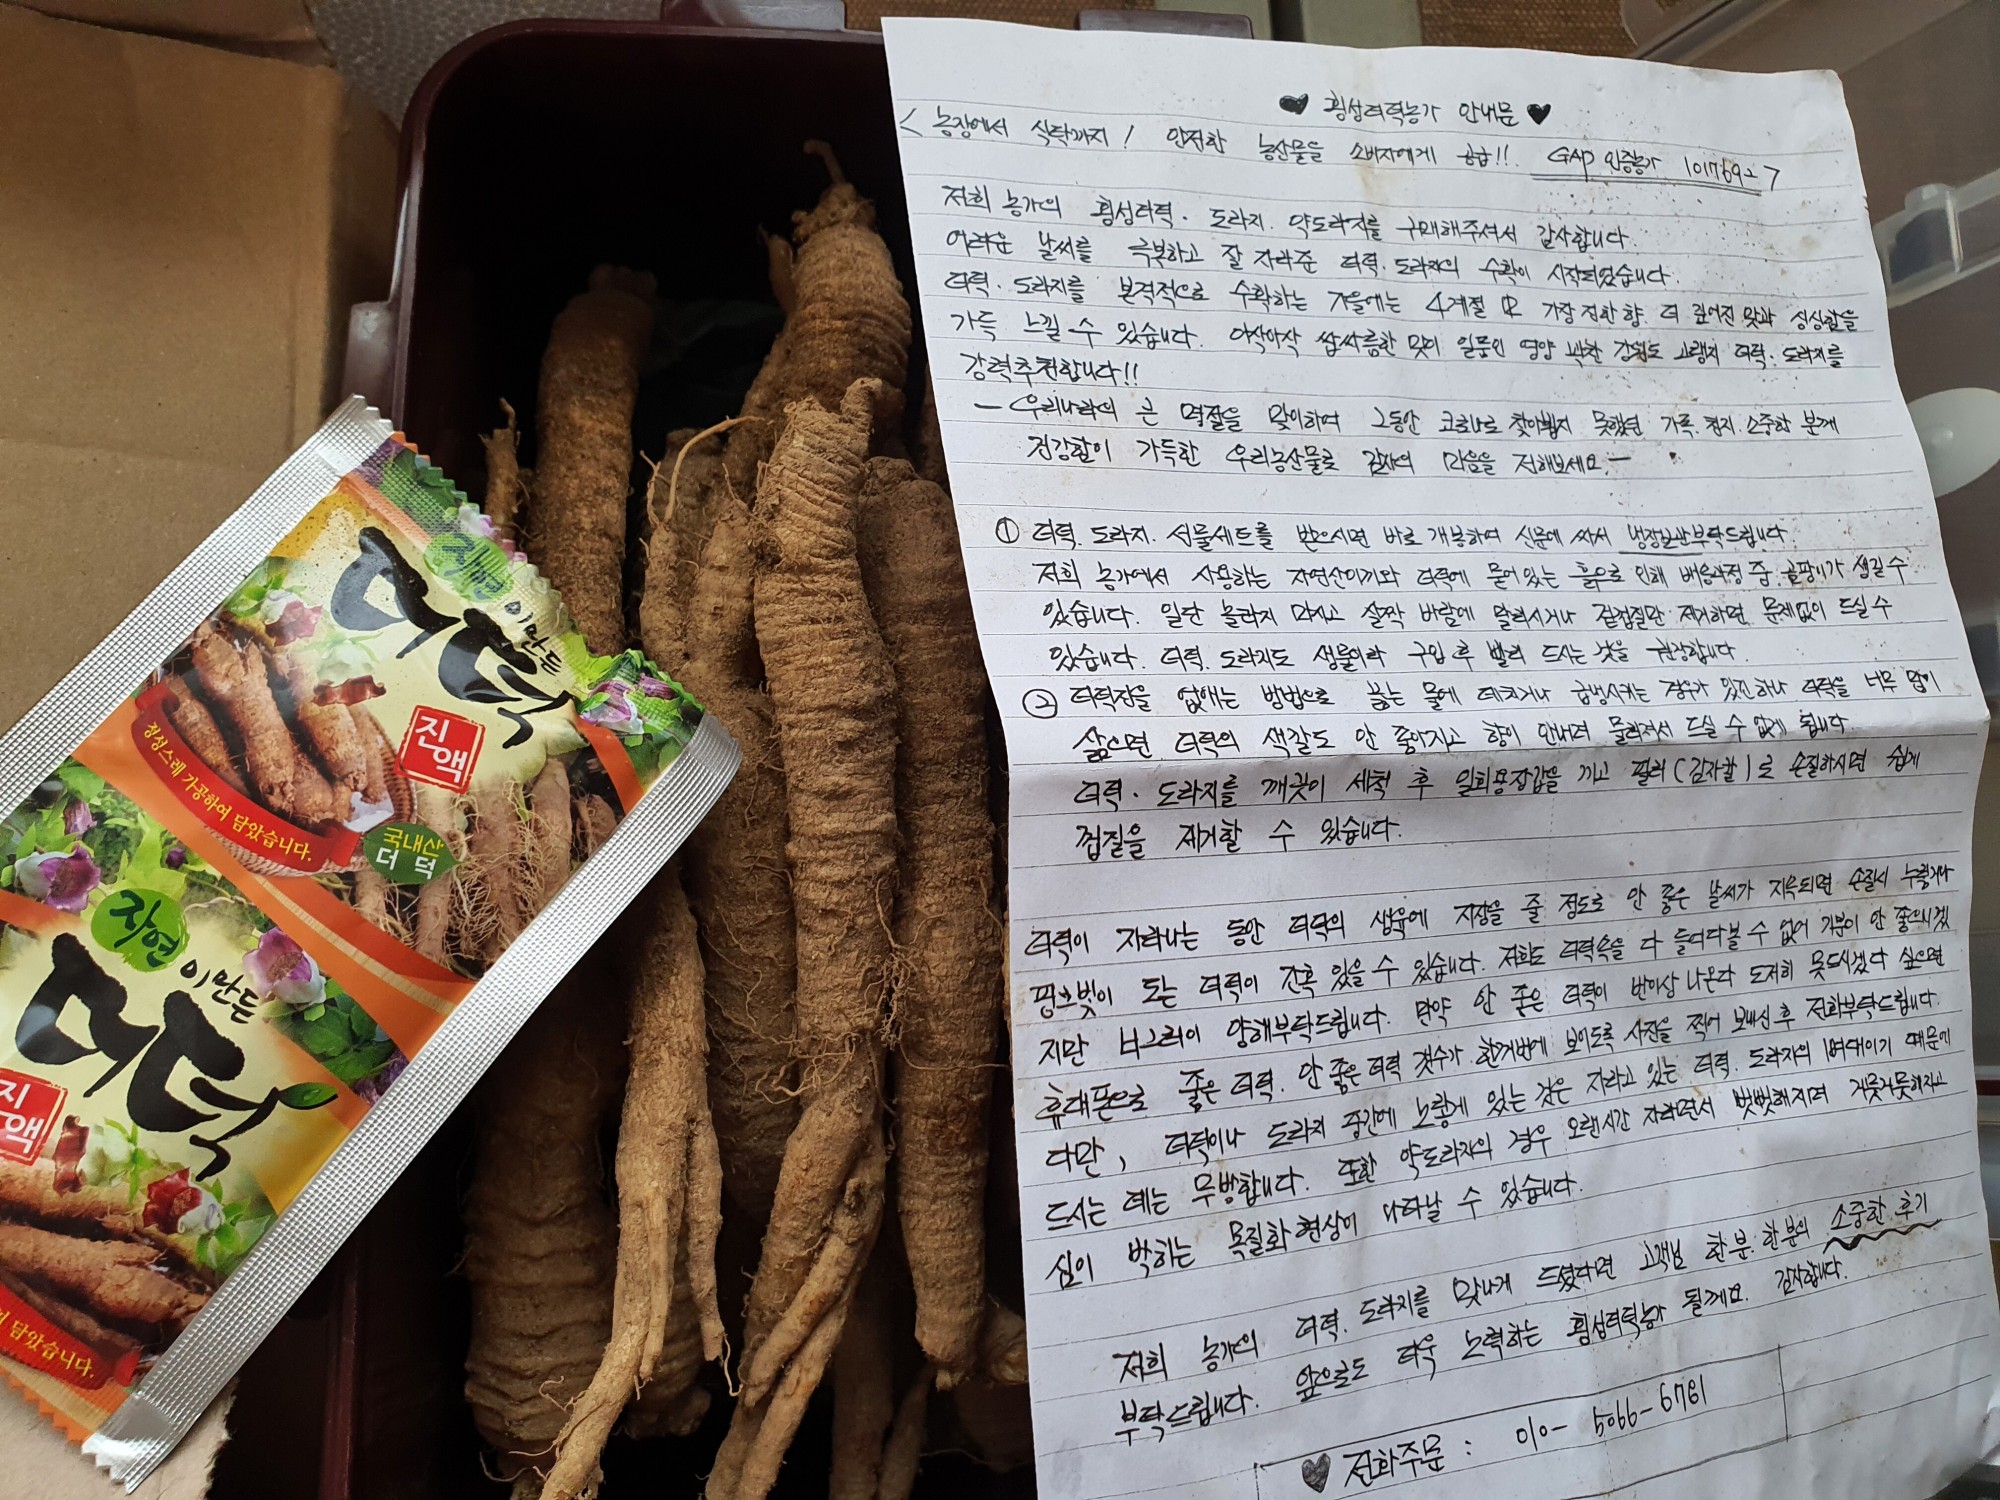 ♥ 횡성더덕농가 안내문 ♥
< 농장에서 식탁까지! 안전한 농산물을 소비자에게 공급!! GAP 인증농가 1017692 >
저희 농가의 횡성더덕. 도라지. 약도라지를 구매해주셔서 감사합니다.
어려운 날씨를 극복하고 잘 자라준 더덕. 도라지의 수확이 시작되었습니다.
더덕. 도라지를 본격적으로 수확하는 가을에는 4계절 中 가장 진한 향. 더 깊어진 맛과 싱싱함을
가득 느낄 수 있습니다. 아삭아삭 쌉싸름한 맛이 일품인 영양 꽉찬 강원도 고랭지 더덕. 도라지를
강력추천합니다!!
- 우리나라의 큰 명절을 맞이하여 그동안 코로나로 찾아뵙지 못했던 가족. 친지. 소중한 분께
건강함이 가득한 우리농산물로 감사의 마음을 전해보세요. -
① 더덕. 도라지. 선물세트를 받으시면 바로 개봉하여 신문에 싸서 냉장보관부탁드립니다.
저희 농가에서 사용하는 자연산이끼와 더덕에 묻어있는 흙으로 인해 배송과정 중 곰팡이가 생길 수
있습니다. 일단 놀라지 마시고 살짝 바람에 말리시거나 겉껍질만 제거하면 문제없이 드실 수
있습니다. 더덕. 도라지도 생물이라 구입 후 빨리 드시는 것을 권장합니다.
② 더덕진을 없애는 방법으로 끓는 물에 데치거나 급냉시키는 경우가 있긴하나 더덕을 너무 많이
삶으면 더덕의 색깔도 안 좋아지고 향이 안나며 물러져서 드실 수 없게 됩니다.
더덕. 도라지를 깨끗이 세척 후 일회용장갑을 끼고 필러(감자칼)로 손질하시면 쉽게
껍질을 제거할 수 있습니다.
더덕이 자라나는 동안 더덕의 생육에 지장을 줄 정도로 안 좋은 날씨가 지속되면 손질시 누렇거나
핑크빛이 도는 더덕이 간혹 있을 수 있습니다. 저희도 더덕속을 다 들여다볼 수 없어 기분이 안 좋으시겠
지만 너그러이 양해부탁드립니다. 만약 안 좋은 더덕이 반이상 나온다 도저히 못드시겠다 싶으면
휴대폰으로 좋은 더덕. 안 좋은 더덕 갯수가 한꺼번에 보이도록 사진을 찍어 보내신 후 전화부탁드립니다.
다만, 더덕이나 도라지 중간에 노랗게 있는 것은 자라고 있는 더덕. 도라지의 뇌대이기 때문에
드시는 데는 무방합니다. 또한 약도라지의 경우 오랜시간 자라면서 뻣뻣해지며 거뭇거뭇해지고
심이 박히는 목질화 현상이 나타날 수 있습니다.
저희 농가의 더덕. 도라지를 맛나게 드셨다면 고객님 한분. 한분의 소중한 후기
부탁드립니다. 앞으로도 더욱 노력하는 횡성더덕농가 될게요. 감사합니다.
♥ 전화주문 : 010-5066-6781
자연이만든
더덕
진액
정성스레 가공하여 담았습니다.
국내산
더덕
자연이만든
더덕
진액
담았습니다.